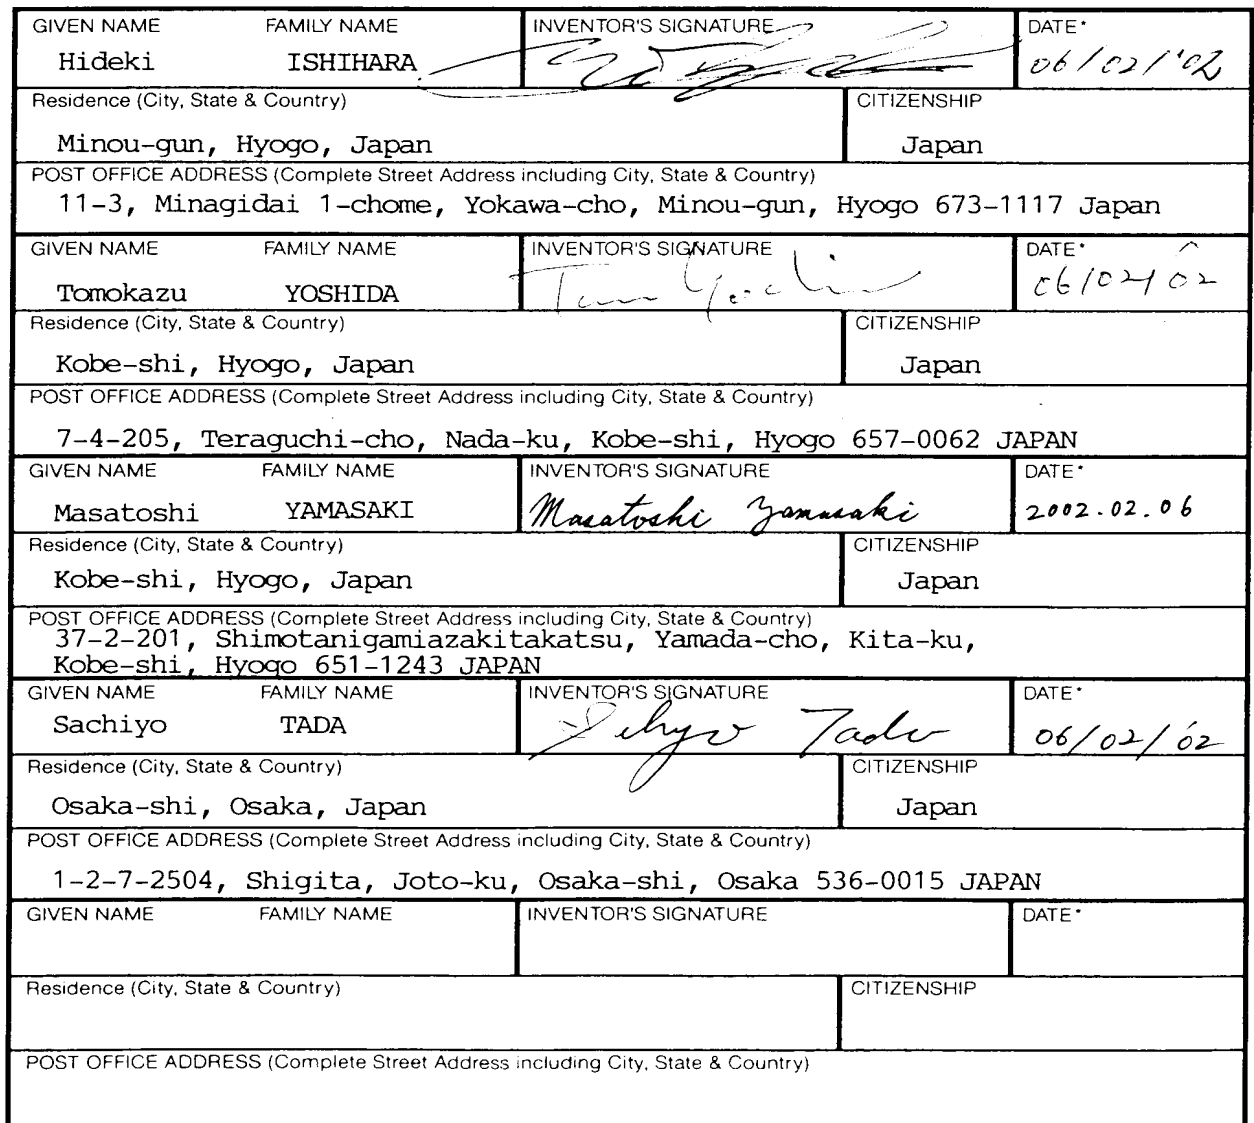 GIVEN NAME FAMILY NAME INVENTOR'S SIGNATURE DATE*
Hideki ISHIHARA 06/02/'02
Residence (City, State & Country) CITIZENSHIP
Minou-gun, Hyogo, Japan Japan
POST OFFICE ADDRESS (Complete Street Address including City, State & Country)
11-3, Minagidai 1-chome, Yokawa-cho, Minou-gun, Hyogo 673-1117 Japan
GIVEN NAME FAMILY NAME INVENTOR'S SIGNATURE DATE*
Tomokazu YOSHIDA 06/02/02
Residence (City, State & Country) CITIZENSHIP
Kobe-shi, Hyogo, Japan Japan
POST OFFICE ADDRESS (Complete Street Address including City, State & Country)
7-4-205, Teraguchi-cho, Nada-ku, Kobe-shi, Hyogo 657-0062 JAPAN
GIVEN NAME FAMILY NAME INVENTOR'S SIGNATURE DATE*
Masatoshi YAMASAKI Masatoshi Yamasaki 2002.02.06
Residence (City, State & Country) CITIZENSHIP
Kobe-shi, Hyogo, Japan Japan
POST OFFICE ADDRESS (Complete Street Address including City, State & Country)
37-2-201, Shimotanigamiazakitakatsu, Yamada-cho, Kita-ku,
Kobe-shi, Hyogo 651-1243 JAPAN
GIVEN NAME FAMILY NAME INVENTOR'S SIGNATURE DATE*
Sachiyo TADA Tada 06/02/'02
Residence (City, State & Country) CITIZENSHIP
Osaka-shi, Osaka, Japan Japan
POST OFFICE ADDRESS (Complete Street Address including City, State & Country)
1-2-7-2504, Shigita, Joto-ku, Osaka-shi, Osaka 536-0015 JAPAN
GIVEN NAME FAMILY NAME INVENTOR'S SIGNATURE DATE*
Residence (City, State & Country) CITIZENSHIP
POST OFFICE ADDRESS (Complete Street Address including City, State & Country)